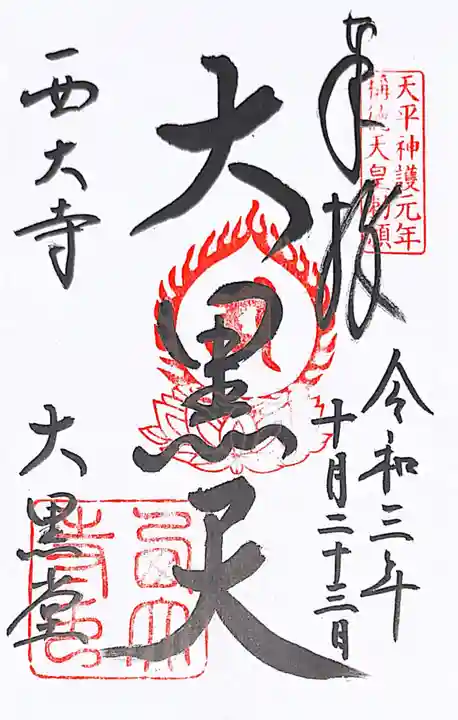 奉拝
天平神護元年
稱徳天皇勅願
令和三年
十月二十三日
大黒天
西大寺
大黒堂